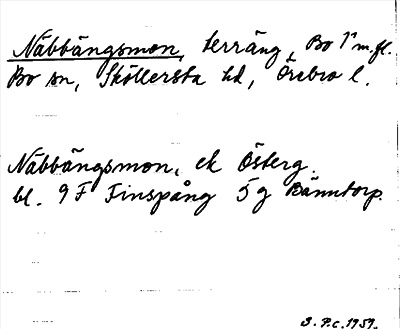 Näbbängsmon, terräng, Bo 1⁴ m.fl.
Bo sn, Sköllersta hd, Örebro l.
Näbbängsmon, ek Österg.
bl. 9 F Finspång 5 g Bänntorp.
S. P.c. 1959.